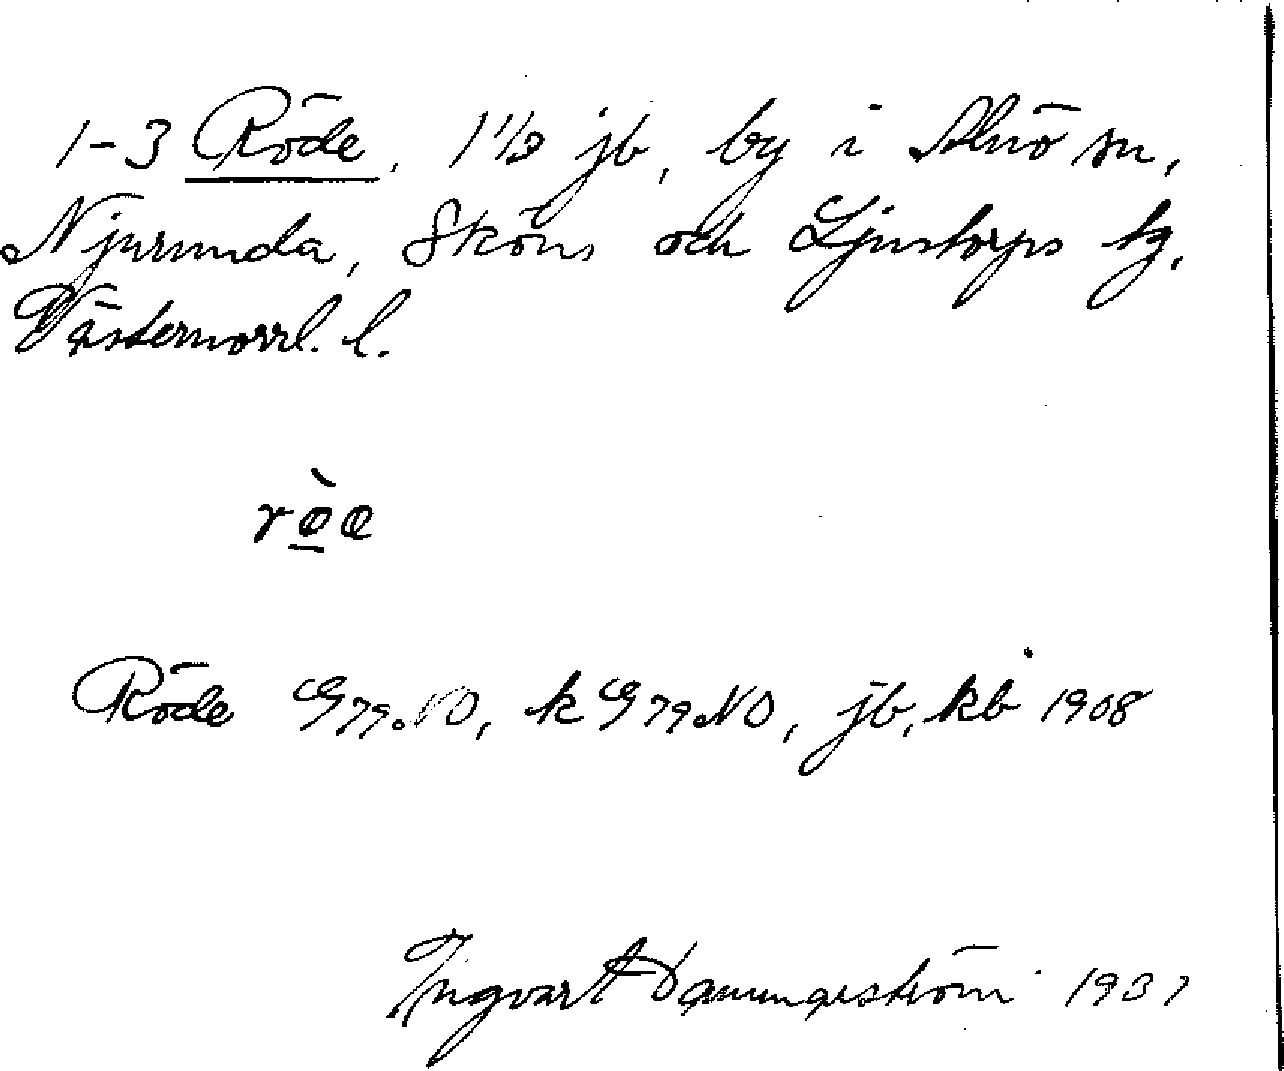 1-3 Röde, 1 1/3 jb, by i Alnö sn,
Njurunda, Sköns och Ljustorps tg,
Västernorrl. l.
Röde G79.NO, k G79.NO, jb, kb 1908
Ingvart Dammarström 1937